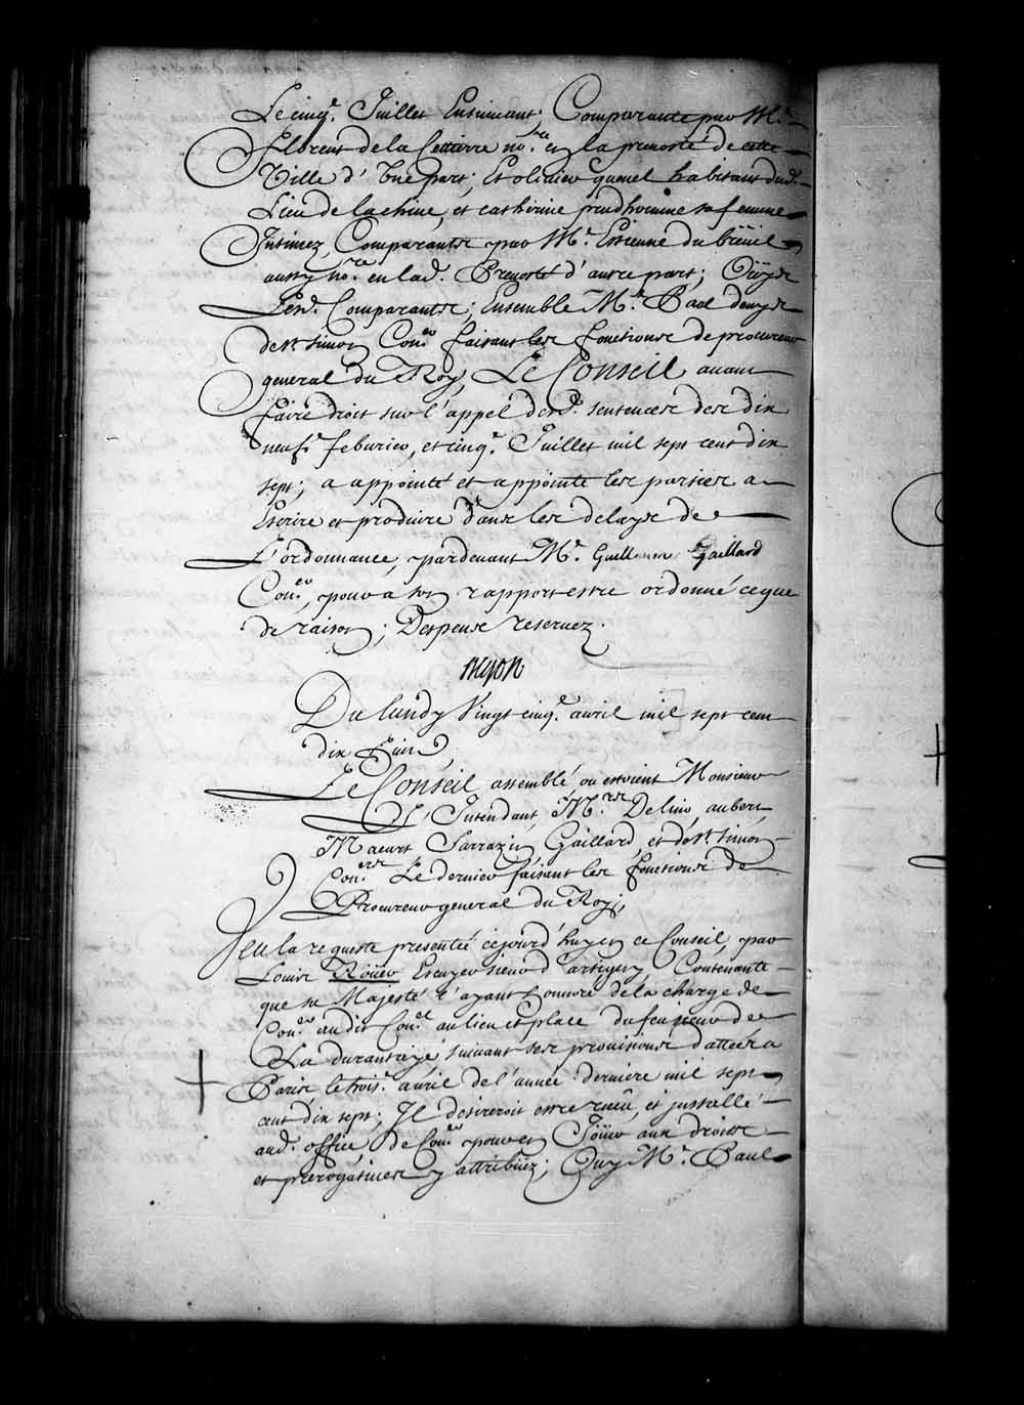 Le cinq.e Juillet Ensuivant; Comparante par M.e
Florent de la Cettiere no.re en la prevosté de cette
Ville d'Une part; Et olivier quenel habitant dud.
Lieu de lachine, et catherine prudhomme sa femme
Intimez, Comparants par M.e Estienne du breüil
aussy no.re en lad. Prevosté d'autre part; Oüys
Lesd. Comparants; Ensemble M.e Paul denys
de st simon Con.er faisant les fonctions de procureur
general du Roy, Le Conseil avant
faire droit sur l'appel desd. sentences des dix
neuf.e febvrier, et cinq.e Juillet mil sept cent dix
sept; a appointé et appointe les parties a
Escrire et produire dans les delays de
L'ordonnance, pardevant M.e Guillaume Gaillard
Con.er, pour a son rapport estre ordonné ce que
de raison; Despens reservez.
Begon
Du lundy Vingt cinq.e avril mil sept cent
dix huit,
Le Conseil assemblé ou estoient Monsieur
L'Intendant, M.rs Delino, aubert,
Macart Sarrazin Gaillard, et de st simon
Con.ers Le dernier faisant les fonctions de
Procureur general du Roy;
Veu la requeste presentée cejourd'huy en ce Conseil, par
Louis Roüer Escuyer sieur d'artigny, Contenante
que sa Majesté l'ayant honoré de la charge de
Con.er audit Con.el au lieu et place du feu sieur de
La durantaye suivant ses provisions dattées a
Paris le trois.e avril de l'année derniere mil sept
cent dix sept; Il desireroit estre receu, et installé
aud. office de Con.er pour en Joüir aux droits
et prerogatives y attribüez; Ouy M.e Paul